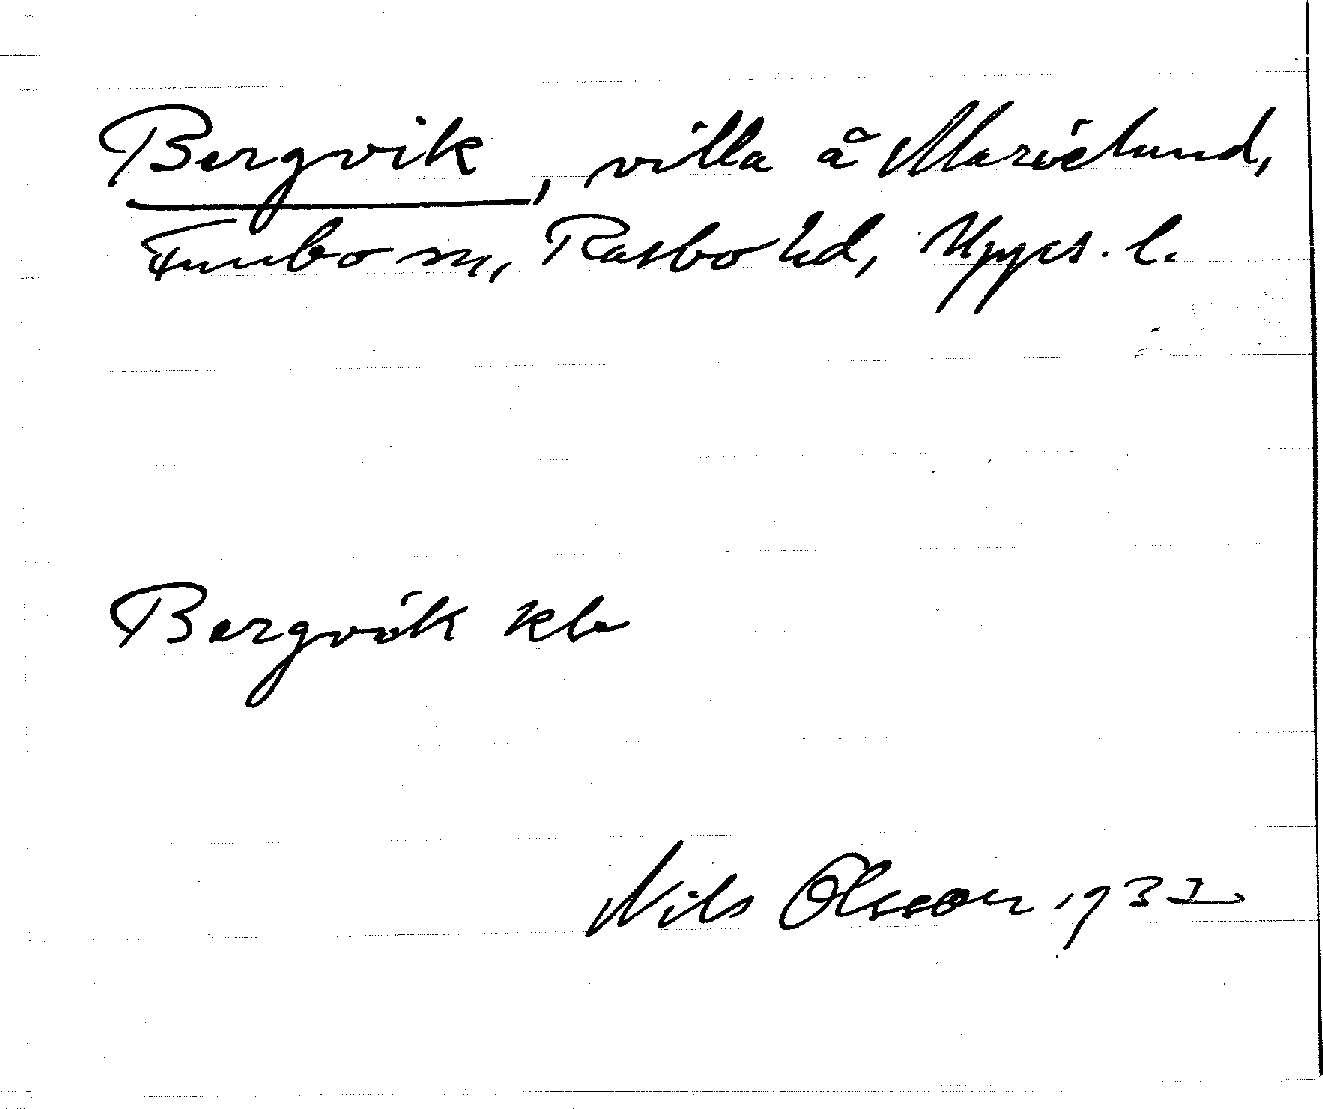 Bergvik, villa å Marielund,
Funbo sn, Rasbo hd, Upps. l.
Bergvik kb
Nils Olsson 1932